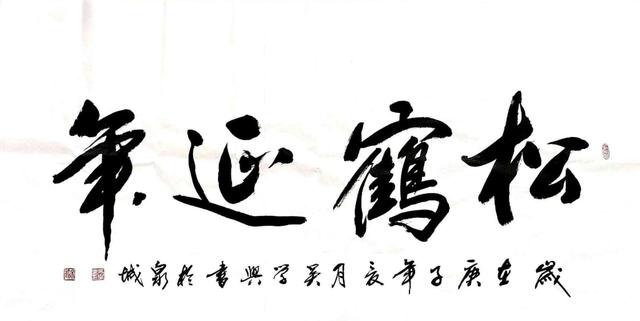 松鶴延年
歲在庚子年夏月吴学興書於泉城